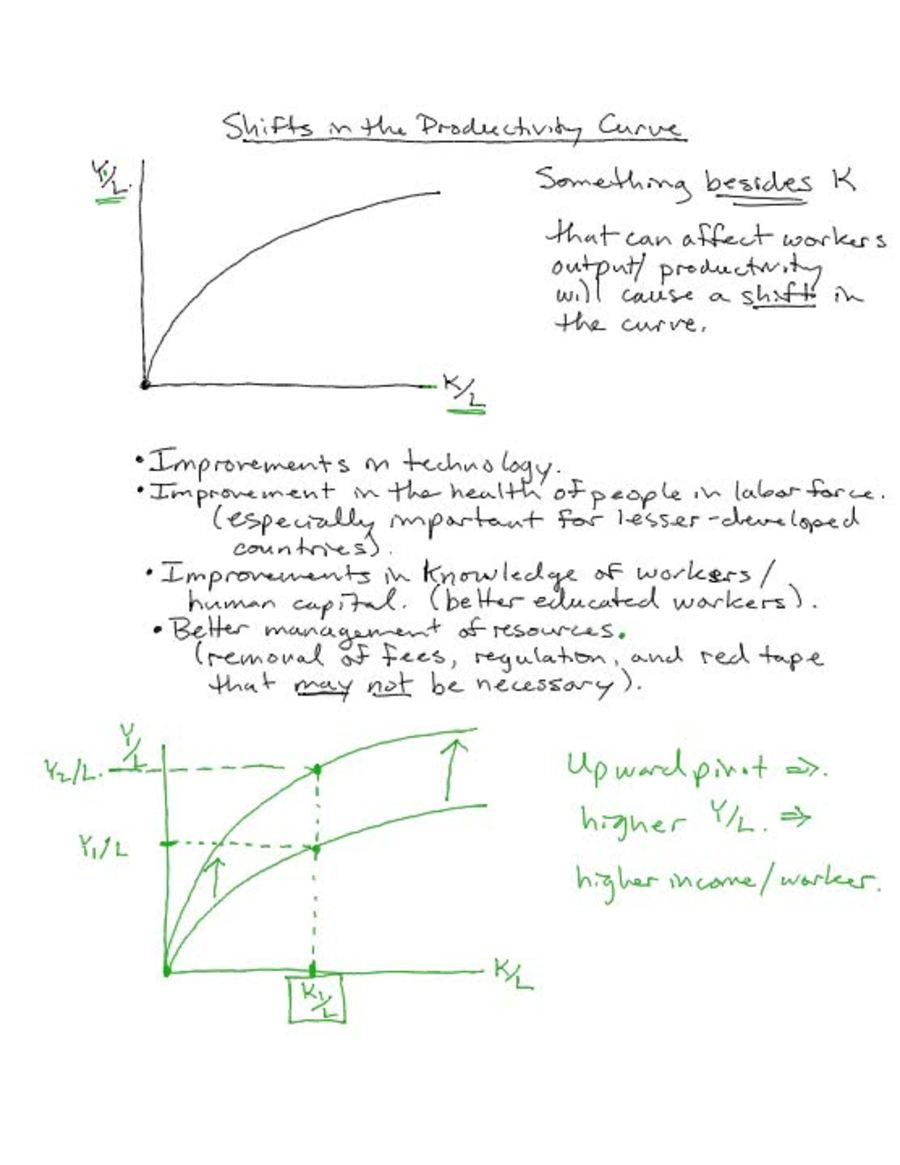 Shifts in the Productivity Curve
Y/L
Something besides K
that can affect workers
output/productivity
will cause a shift in
the curve.
K/L
• Improvements in technology.
• Improvement in the health of people in labor force.
(especially important for lesser-developed
countries).
• Improvements in knowledge of workers/
human capital. (better educated workers).
• Better management of resources.
(removal of fees, regulation, and red tape
that may not be necessary).
Y/L
Y2/L
Upward pivot ⇒
higher Y/L. ⇒
Y1/L
higher income/worker.
K/L
K1/L